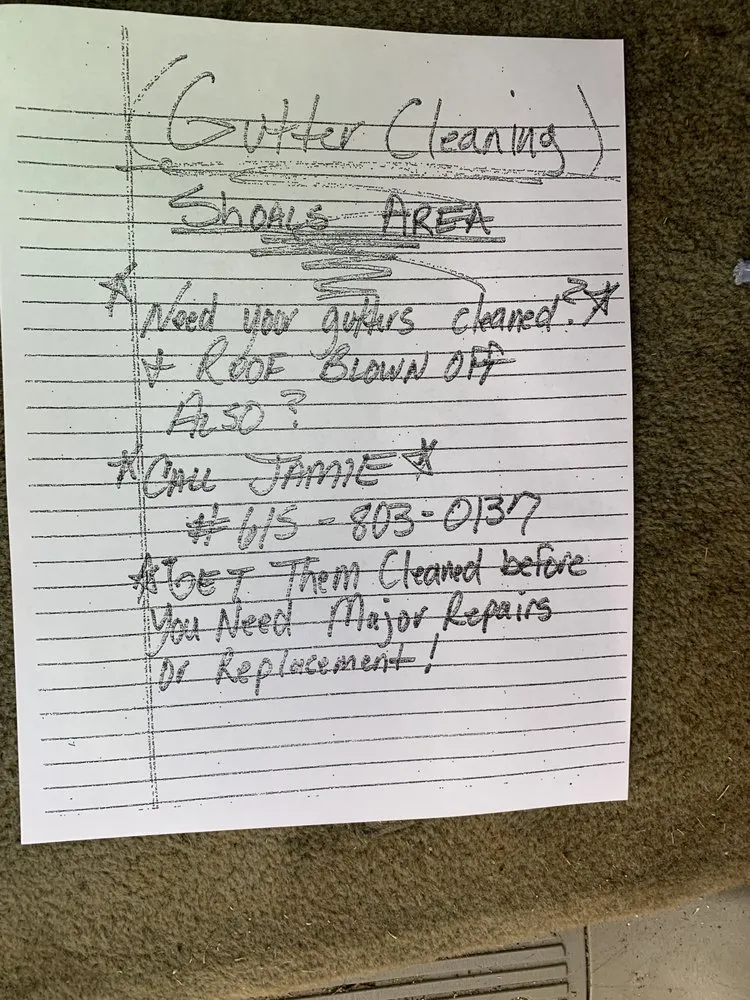 (Gutter Cleaning)
SHOALS AREA
☆ Need your gutters cleaned? ☆
+ ROOF BLOWN OFF
ALSO?
☆ CALL JAMIE ☆
# 615-803-0137
☆ GET Them Cleaned before
You Need Major Repairs
or Replacement!